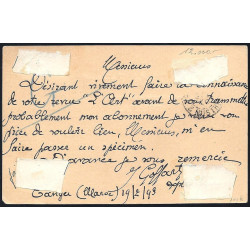 Messieurs
Désirant vivement faire la connaissance
de votre revue "L'Est" avant de vous transmettre
probablement mon abonnement je viens vous
prier de vouloir bien, Messieurs, m'en
faire passer un spécimen.
D'avance je vous remercie
Coffart
Tanger (Maroc) 19